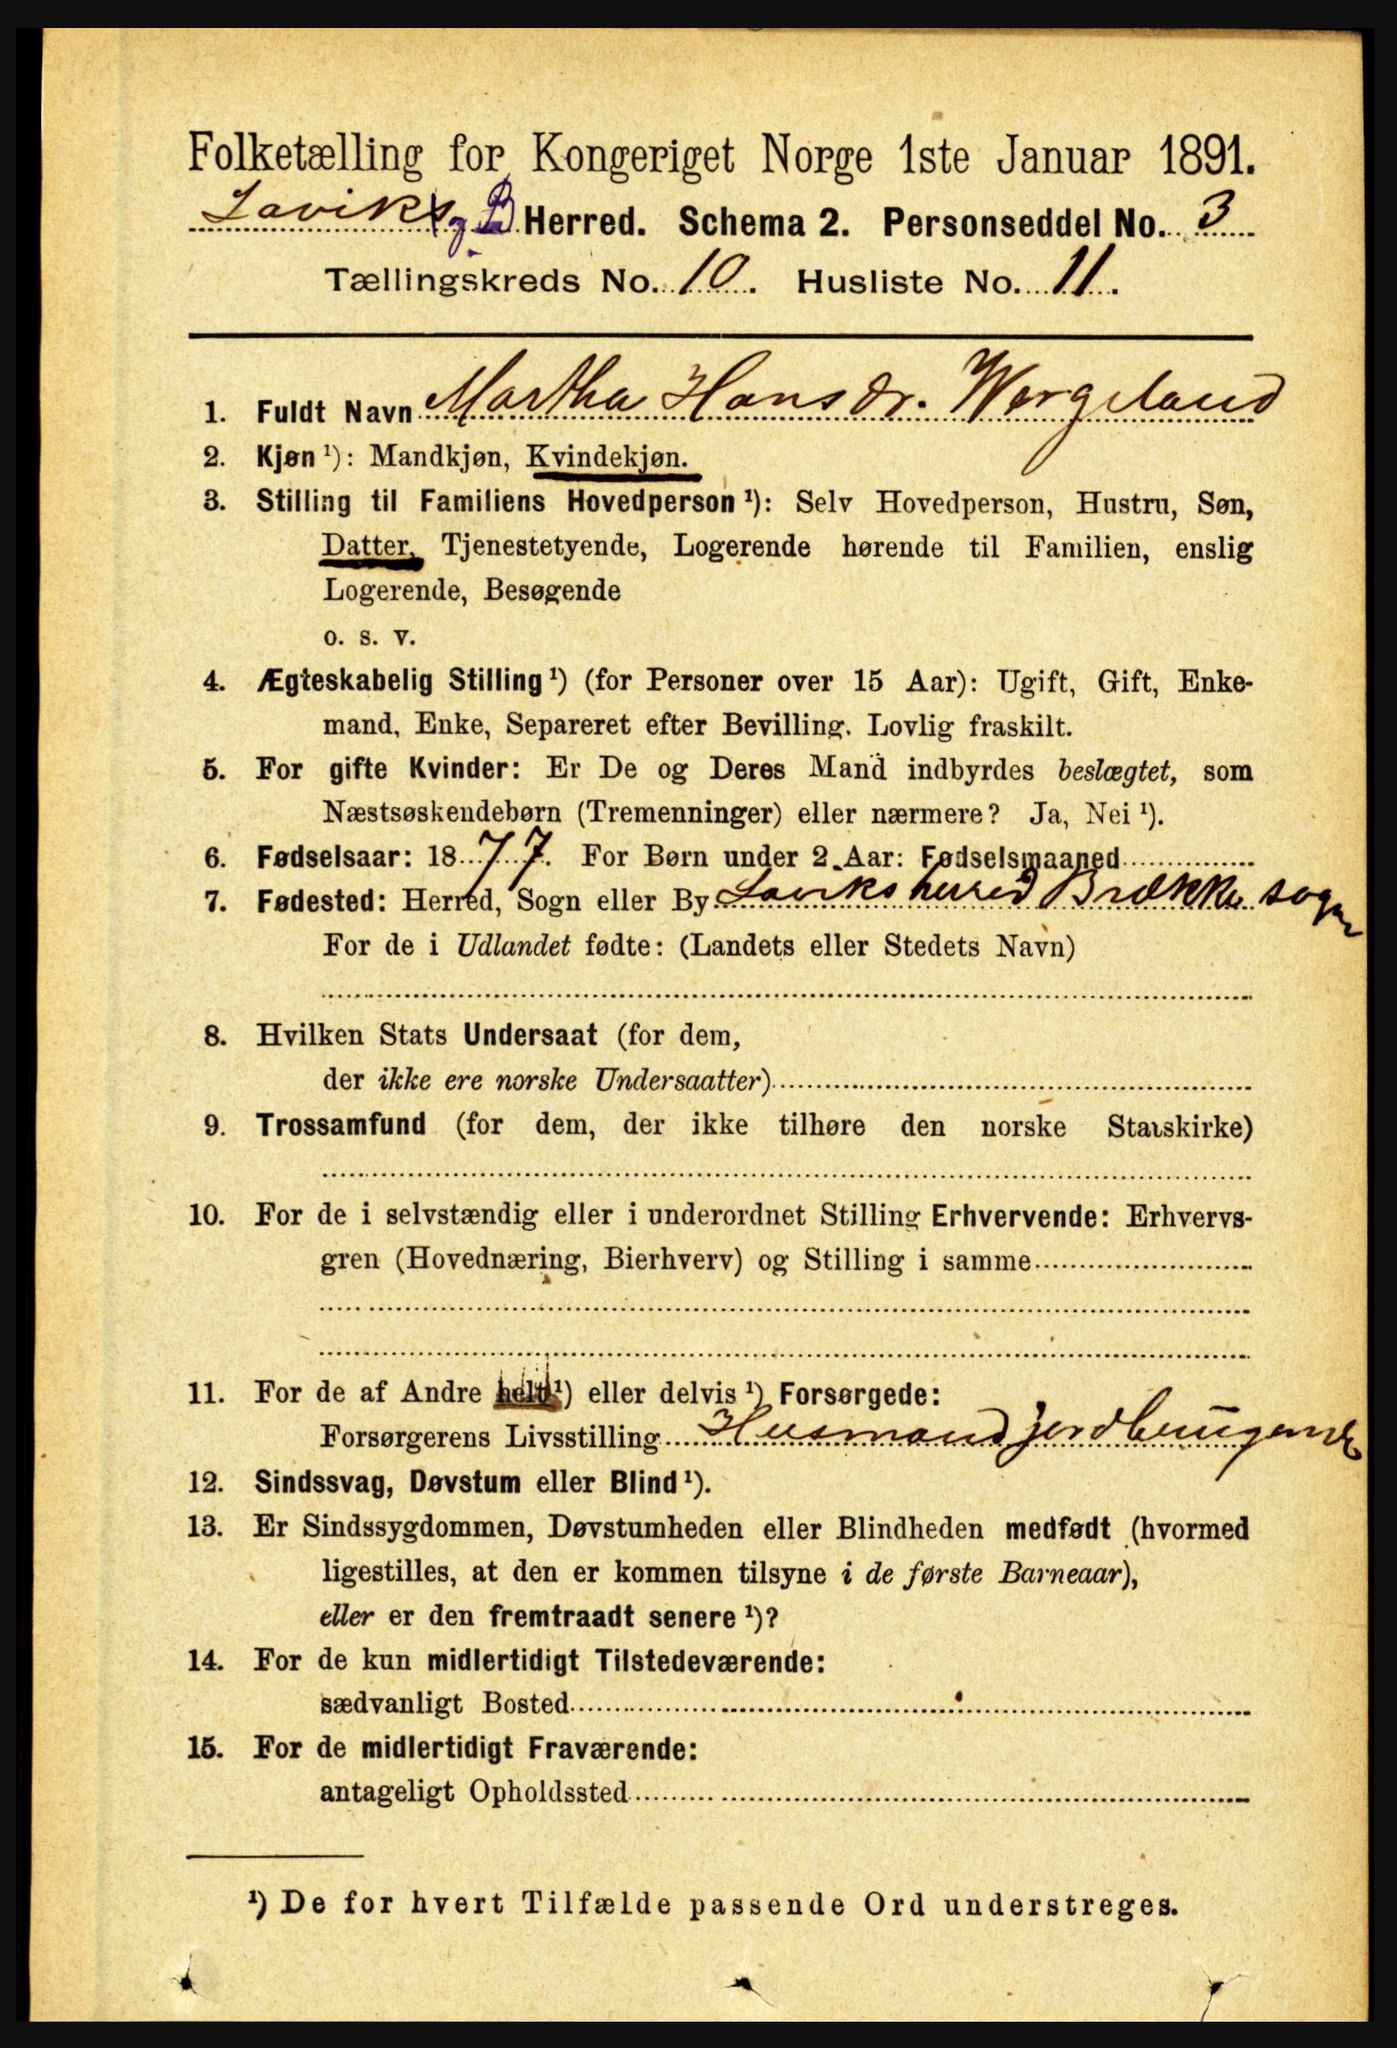 Folketælling for Kongeriget Norge 1ste Januar 1891.
Laviks og B Herred. Schema 2. Personseddel No. 3
Tællingskreds No. 10. Husliste No. 11.
1. Fuldt Navn Martha Hansdr. Wergeland
2. Kjøn ¹): Mandkjøn, Kvindekjøn.
3. Stilling til Familiens Hovedperson ¹): Selv Hovedperson, Hustru, Søn,
Datter, Tjenestetyende, Logerende hørende til Familien, enslig
Logerende, Besøgende
o. s. v.
4. Ægteskabelig Stilling ¹) (for Personer over 15 Aar): Ugift, Gift, Enke-
mand, Enke, Separeret efter Bevilling. Lovlig fraskilt.
5. For gifte Kvinder: Er De og Deres Mand indbyrdes beslægtet, som
Næstsøskendebørn (Tremenninger) eller nærmere? Ja, Nei ¹).
6. Fødselsaar: 1877. For Børn under 2 Aar: Fødselsmaaned
7. Fødested: Herred, Sogn eller By Laviks herred Brække sogn
For de i Udlandet fødte: (Landets eller Stedets Navn)
8. Hvilken Stats Undersaat (for dem,
der ikke ere norske Undersaatter)
9. Trossamfund (for dem, der ikke tilhøre den norske Statskirke)
10. For de i selvstændig eller i underordnet Stilling Erhvervende: Erhvervs-
gren (Hovednæring, Bierhverv) og Stilling i samme
11. For de af Andre helt ¹) eller delvis ¹) Forsørgede:
Forsørgerens Livsstilling Husmand
12. Sindssvag, Døvstum eller Blind ¹).
13. Er Sindssygdommen, Døvstumheden eller Blindheden medfødt (hvormed
ligestilles, at den er kommen tilsyne i de første Barneaar),
eller er den fremtraadt senere ¹)?
14. For de kun midlertidigt Tilstedeværende:
sædvanligt Bosted
15. For de midlertidigt Fraværende:
antageligt Opholdssted
¹) De for hvert Tilfælde passende Ord understreges.